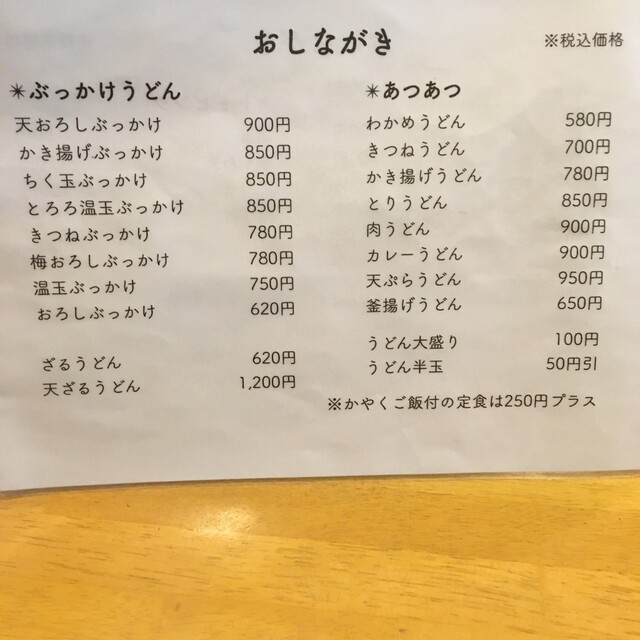 おしながき
※税込価格
✳ぶっかけうどん
天おろしぶっかけ 900円
かき揚げぶっかけ 850円
ちく玉ぶっかけ 850円
とろろ温玉ぶっかけ 850円
きつねぶっかけ 780円
梅おろしぶっかけ 780円
温玉ぶっかけ 750円
おろしぶっかけ 620円
ざるうどん 620円
天ざるうどん 1,200円
✳あつあつ
わかめうどん 580円
きつねうどん 700円
かき揚げうどん 780円
とりうどん 850円
肉うどん 900円
カレーうどん 900円
天ぷらうどん 950円
釜揚げうどん 650円
うどん大盛り 100円
うどん半玉 50円引
※かやくご飯付の定食は250円プラス